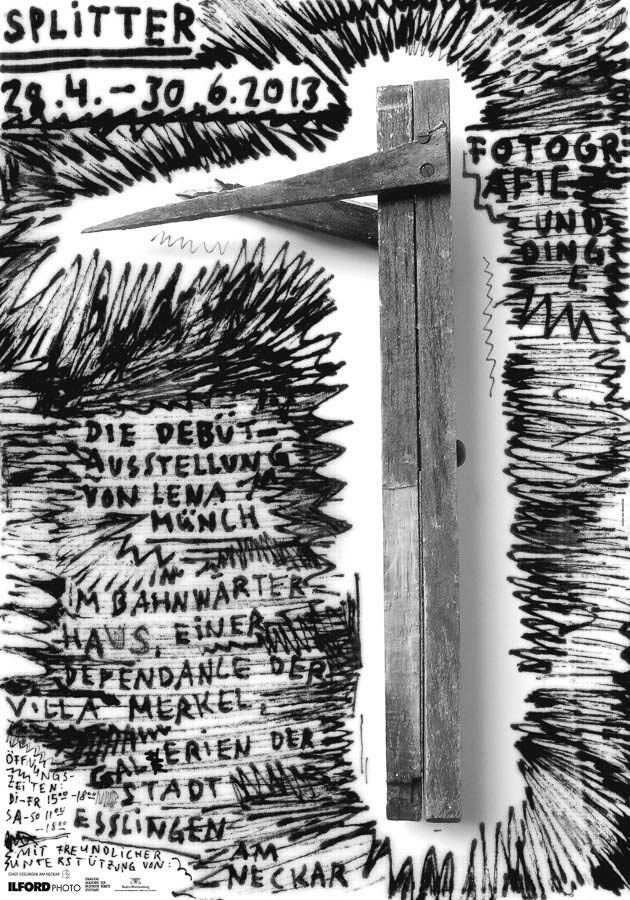 SPLITTER
28.4.–30.6.2013
FOTOGR
AFIE
UND
DING
E
DIE DEBÜT-
AUSSTELLUNG
VON LENA
MÜNCH
IM BAHNWÄRTER-
HAUS, EINER
DEPENDANCE DER
VILLA MERKEL,
GALERIEN DER
STADT
ESSLINGEN
AM
NECKAR
ÖFFN
UNGS-
ZEITEN:
DI-FR 15⁰⁰-18⁰⁰
SA-SO 11⁰⁰
-18⁰⁰
MIT FREUNDLICHER
UNTERSTÜTZUNG VON:
STADT ESSLINGEN AM NECKAR
ILFORD PHOTO
Baden-Württemberg